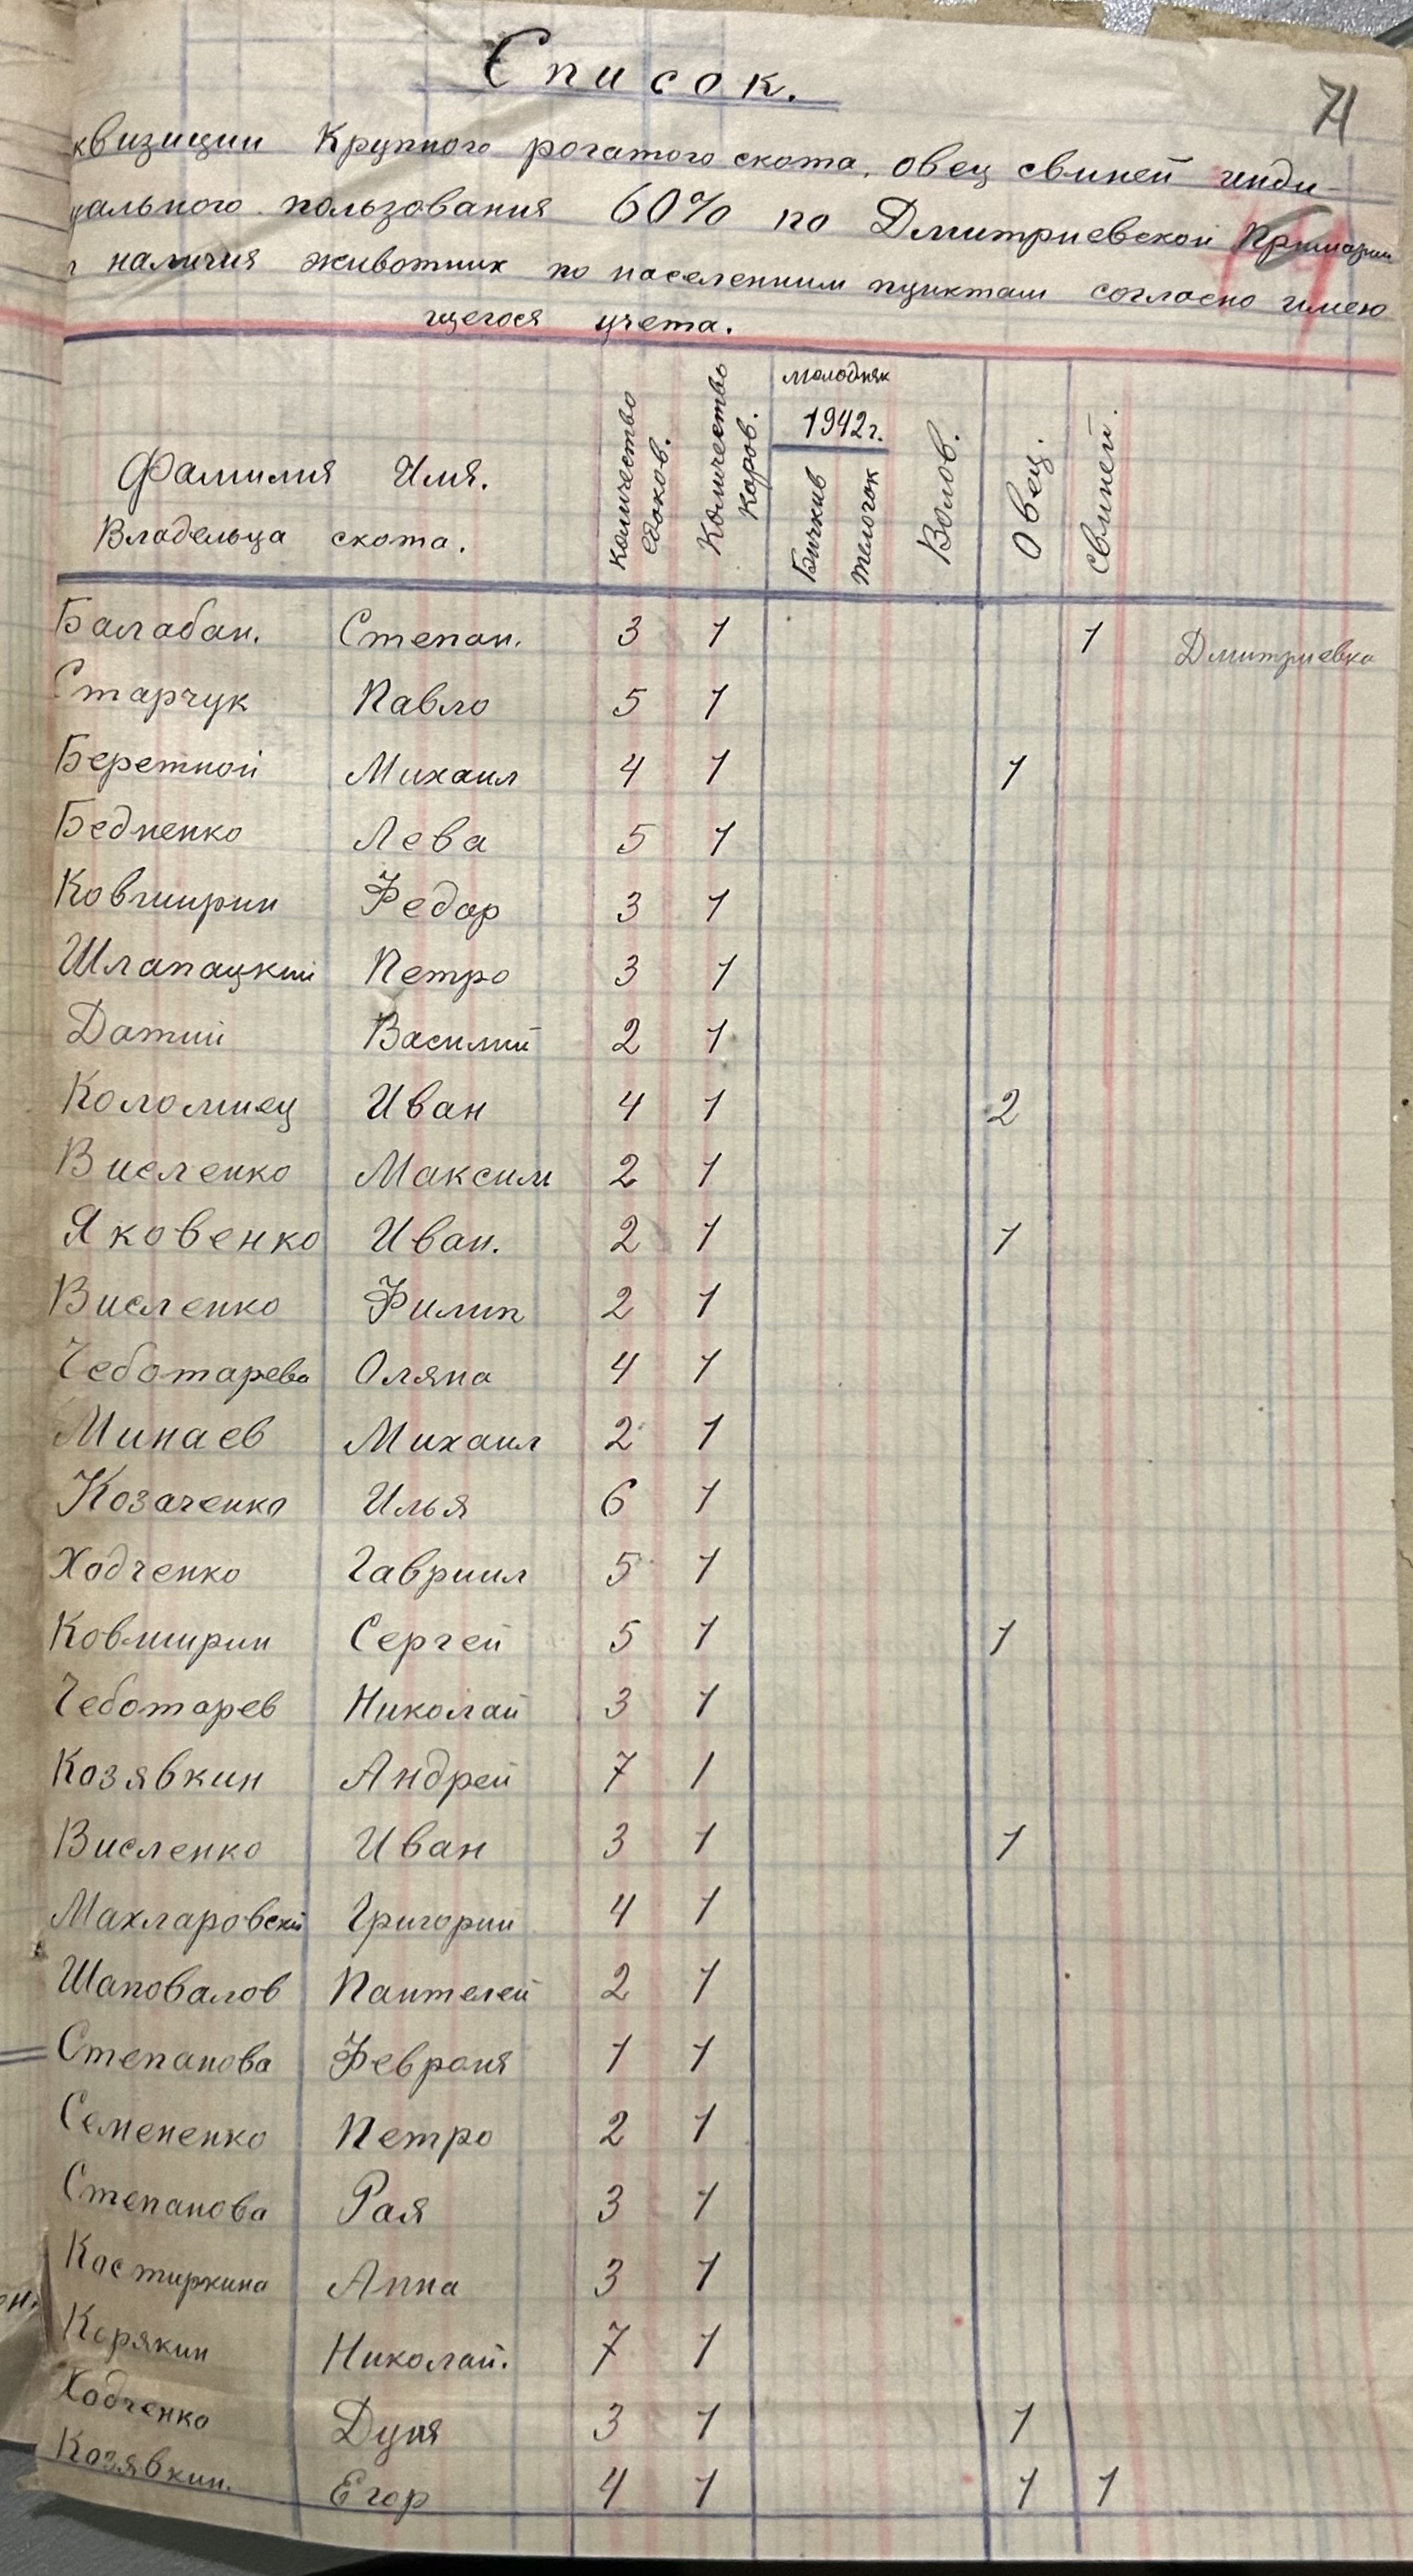 Список.
71
квизиции Крупного рогатого скота, овец свиней инди-
уального пользования 60% по Дмитриевской Примарии
наличия животних по населенним пунктам согласно имею
щегося учета.
Фамилия Имя. Владельца скота. Количество едоков. Количество коров. молодняк 1942г. Бичкив телочок Волов. Овец. свиней.
Балабан. Степан. 3 1 1 Дмитриевка
Старчук Павло 5 1
Беретной Михаил 4 1 1
Бедненко Лева 5 1
Ковширин Федор 3 1
Шлапацкий Петро 3 1
Датий Василий 2 1
Коломиец Иван 4 1 2
Висленко Максим 2 1
Яковенко Иван. 2 1 1
Висленко Филип 2 1
Чеботарева Оляна 4 1
Минаев Михаил 2 1
Козаченко Илья 6 1
Ходченко Гавриил 5 1
Ковширин Сергей 5 1 1
Чеботарев Николай 3 1
Козявкин Андрей 7 1
Висленко Иван 3 1 1
Махларовский Григорий 4 1
Шаповалов Пантелей 2 1
Степанова Феврония 1 1
Семененко Петро 2 1
Степанова Рая 3 1
Костиркина Анна 3 1
Корякин Николай. 7 1
Ходченко Дуня 3 1 1
Козявкин. Егор 4 1 1 1